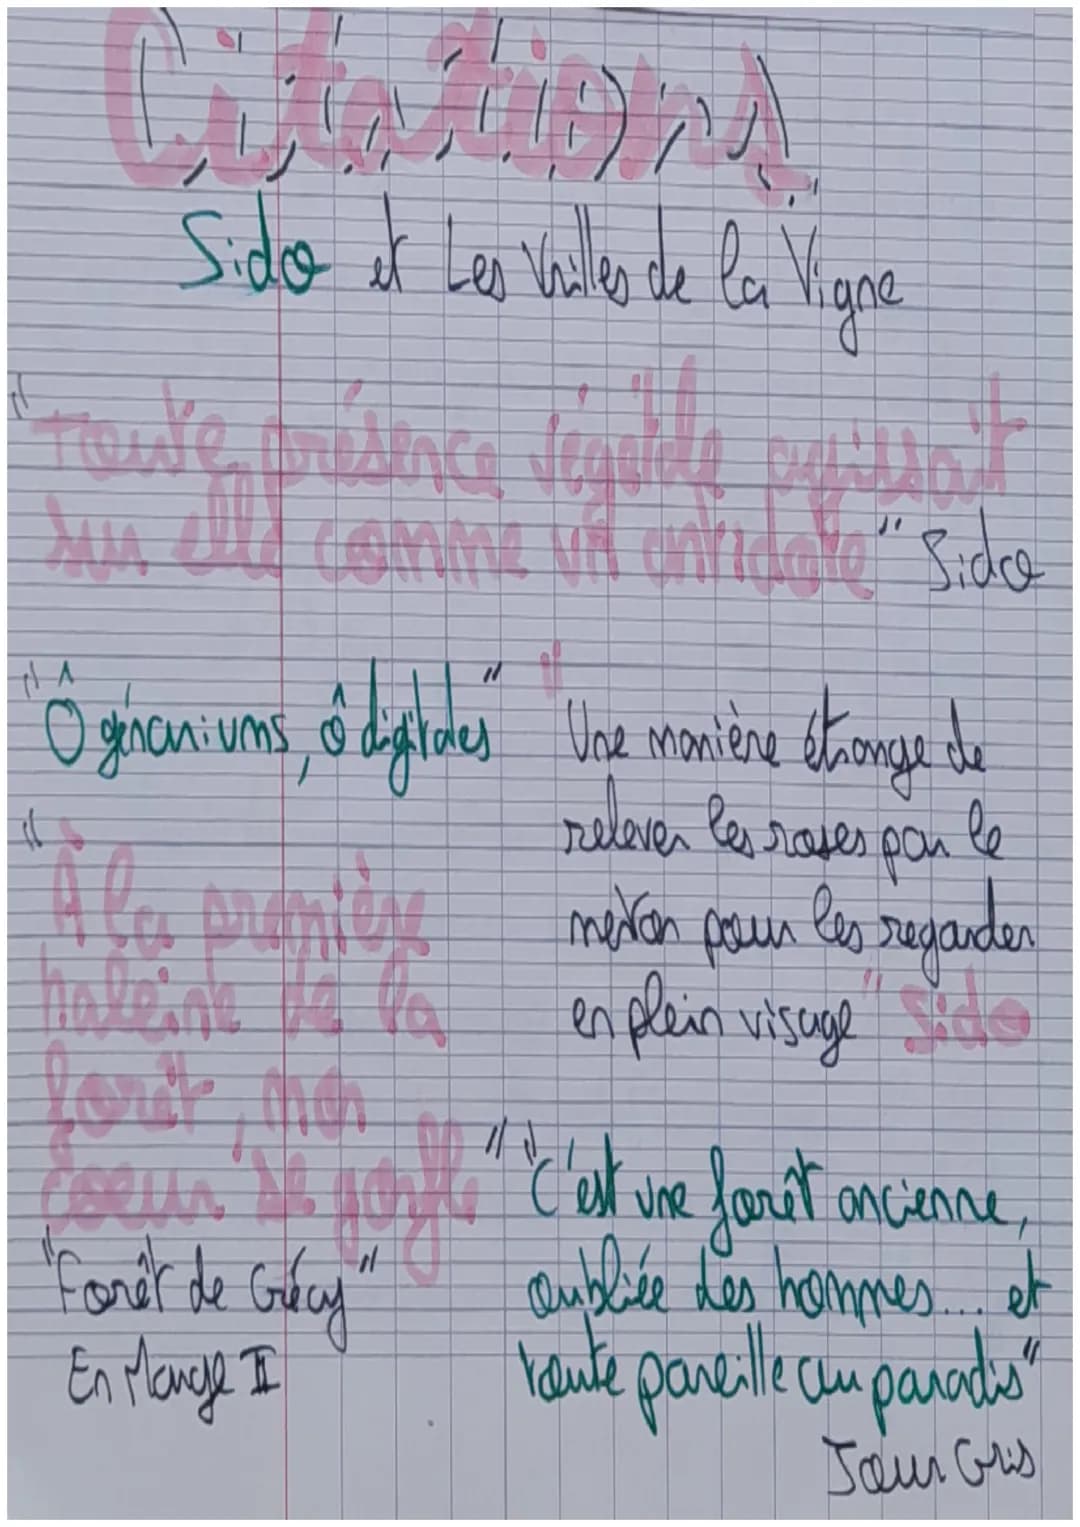 Citations
Sido et Les Vrilles de la Vigne
"Toute présence végétale agissait
sur elle comme un antidote" Sido
"Ô géraniums, ô digitales"
"Une manière étrange de
relever les roses par le
menton pour les regarder
en plein visage" Sido
"À la première
haleine de la
forêt, mon
coeur se gonfle"
"Forêt de Crécy"
En Marge II
"C'est une forêt ancienne,
oubliée des hommes... et
toute pareille au paradis"
Jour Gris